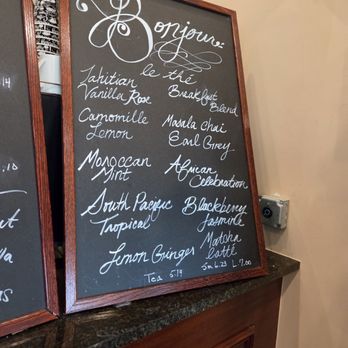 Bonjour
le thé
Tahitian
Vanilla Rose
Camomille
Lemon
Moroccan
Mint
South Pacific
Tropical
Lemon Ginger
Breakfast
Blend
Masala Chai
Earl Grey
African
Celebration
Blackberry
Jasmine
Matcha
Latte
Tea 5.19
Sm 6.23 L 7.00